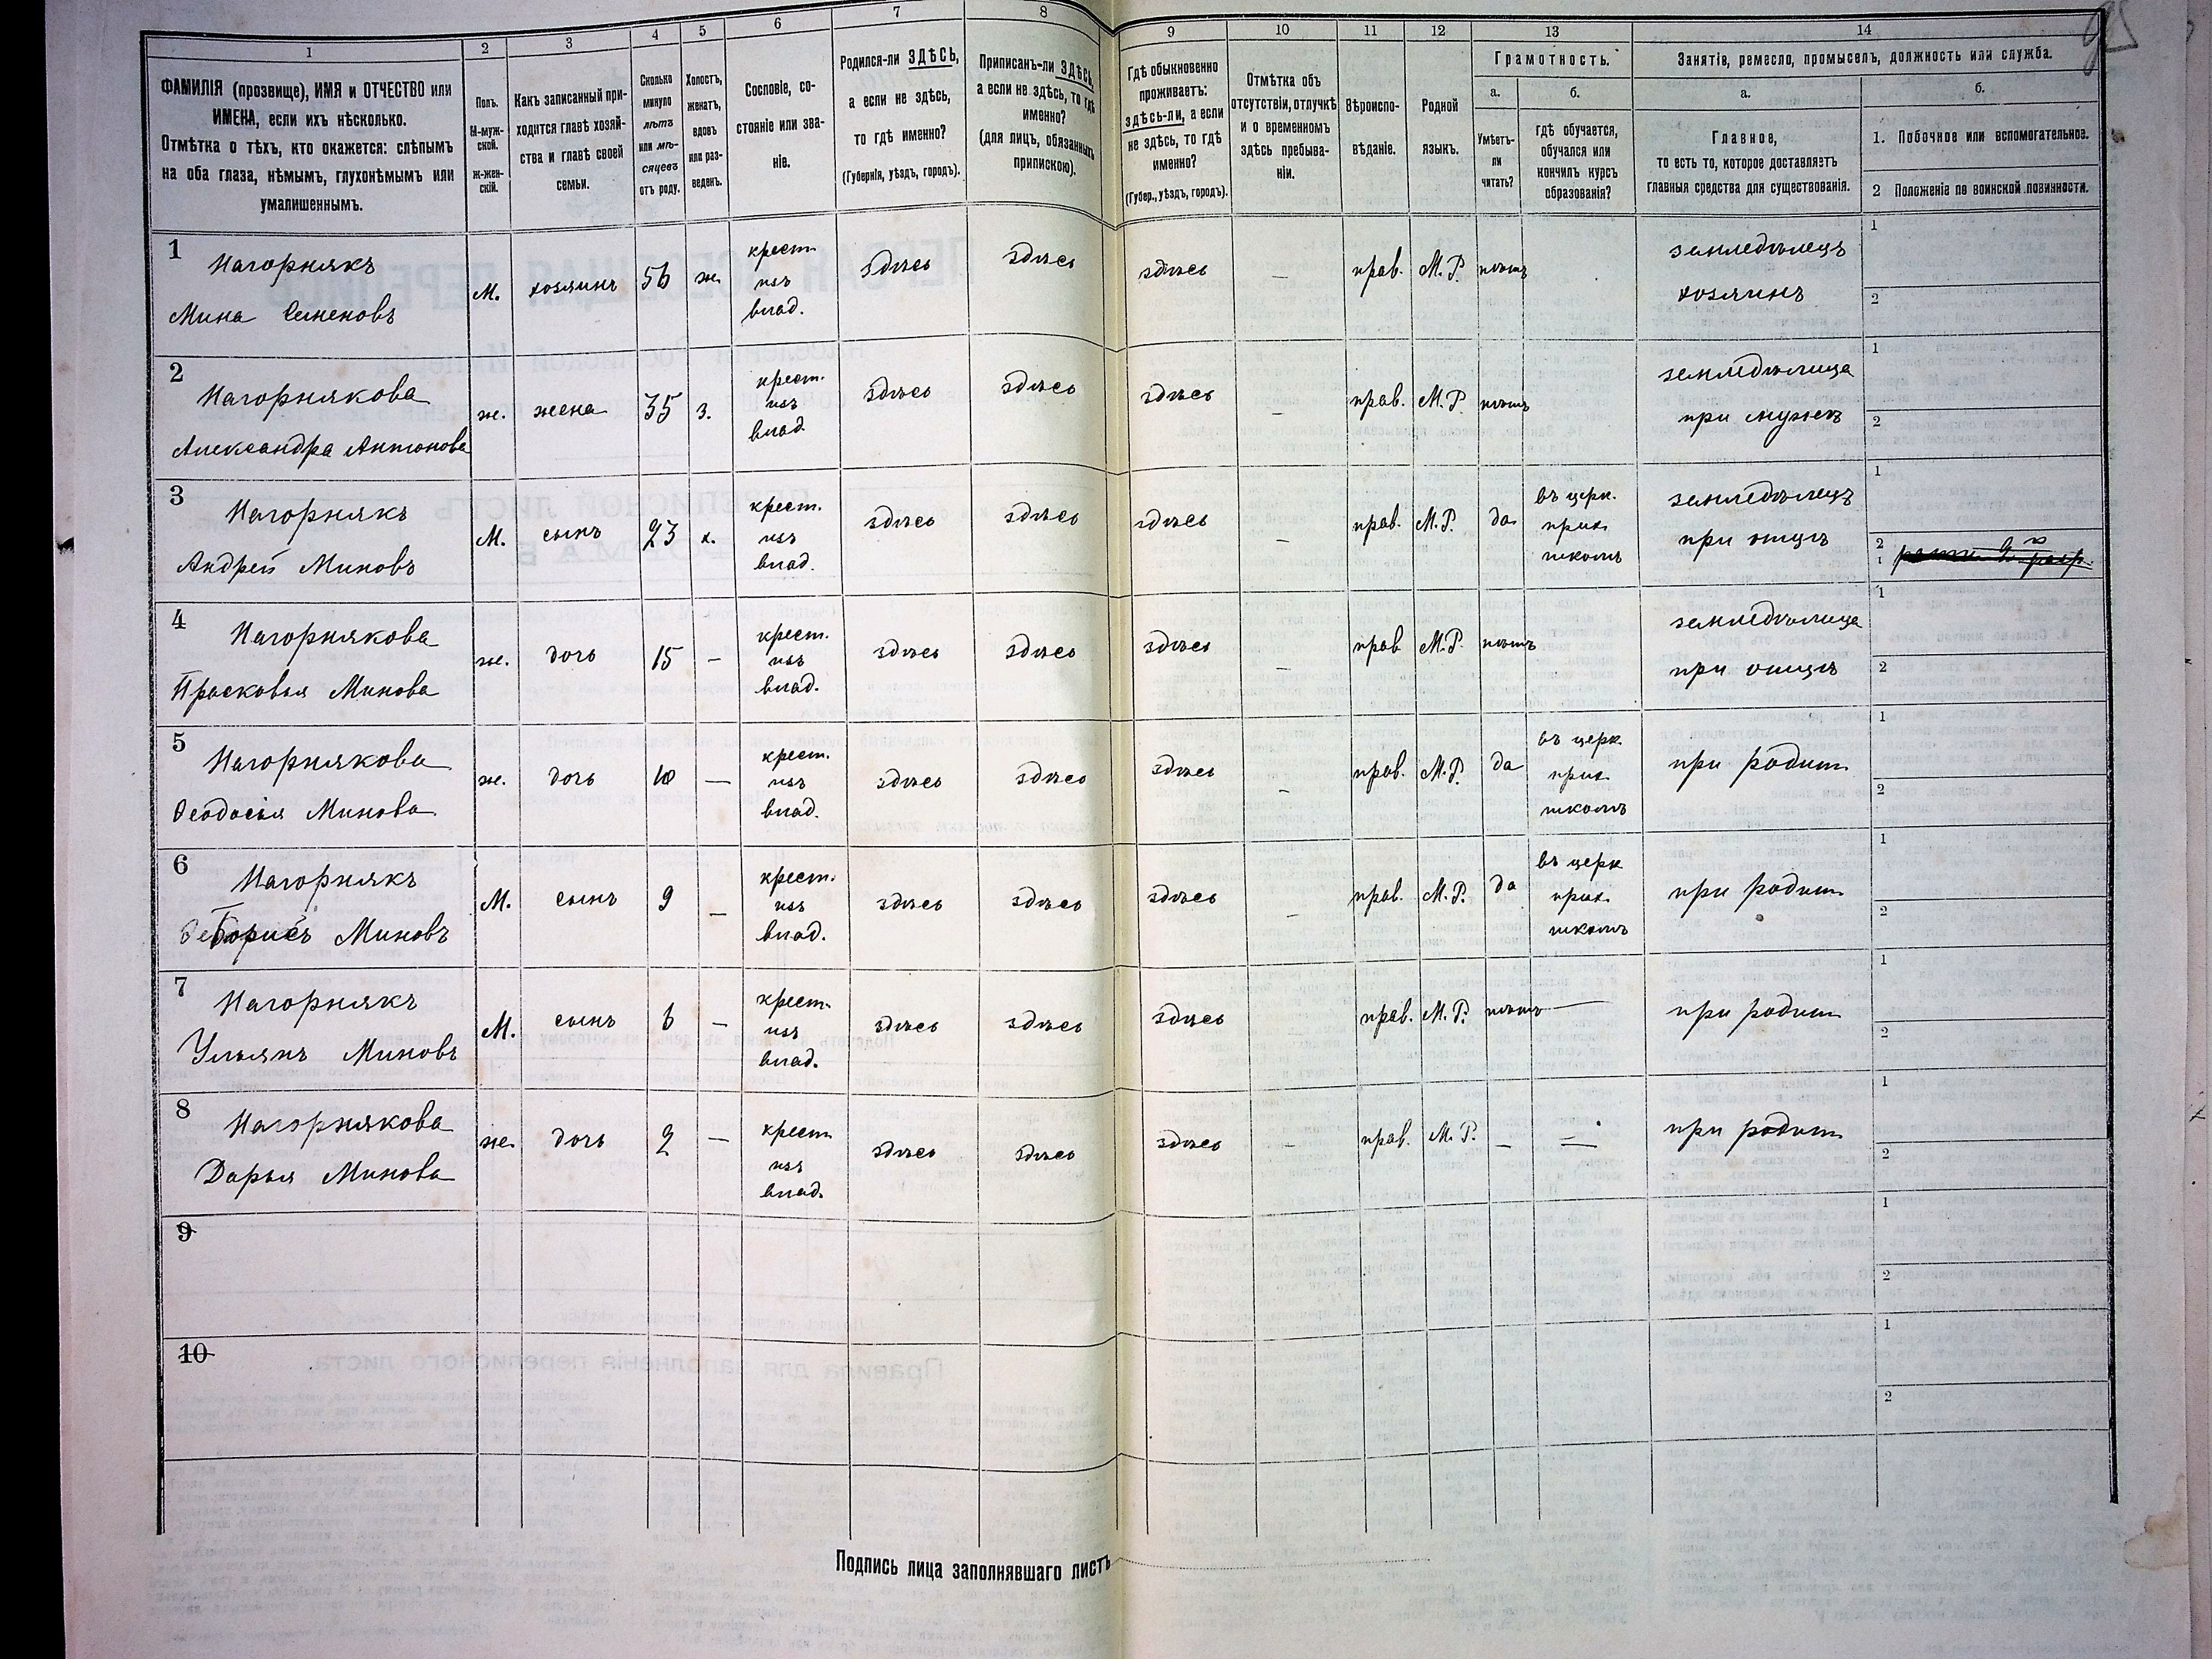 1 2 3 4 5 6 7 8 9 10 11 12 13 14
ФАМИЛІЯ (прозвище), ИМЯ и ОТЧЕСТВО или
ИМЕНА, если ихъ нѣсколько.
Отмѣтка о тѣхъ, кто окажется: слѣпымъ
на оба глаза, нѣмымъ, глухонѣмымъ или
умалишеннымъ.
Полъ.
М-муж-
ской.
ж-жен-
скій.
Какъ записанный при-
ходится главѣ хозяй-
ства и главѣ своей
семьи.
Сколько
минуло
лѣтъ
или мѣ-
сяцевъ
отъ роду.
Холостъ,
женатъ,
вдовъ
или раз-
веденъ.
Сословіе, со-
стояніе или зва-
ніе.
Родился-ли ЗДѢСЬ,
а если не здѣсь,
то гдѣ именно?
(Губернія, уѣздъ, городъ).
Приписанъ-ли ЗДѢСЬ,
а если не здѣсь, то гдѣ
именно?
(для лицъ, обязанныхъ
припискою).
Гдѣ обыкновенно
проживаетъ:
здѣсь-ли, а если
не здѣсь, то гдѣ
именно?
(Губер., уѣздъ, городъ).
Отмѣтка объ
отсутствіи, отлучкѣ
и о временномъ
здѣсь пребыва-
ніи.
Вѣроиспо-
вѣданіе.
Родной
языкъ.
Грамотность.
а.
Умѣетъ-
ли
читать?
б.
гдѣ обучается,
обучался или
кончилъ курсъ
образованія?
Занятіе, ремесло, промыселъ, должность или служба.
а.
Главное,
то есть то, которое доставляетъ
главныя средства для существованія.
б.
1. Побочное или вспомогательное.
2 Положеніе по воинской повинности.
1 Нагорнякъ
Мина Семеновъ
М. хозяинъ 56 ж. крест.
изъ
влад.
здѣсь здѣсь здѣсь – прав. М.Р. нѣтъ
земледѣлецъ
хозяинъ
1
2
2 Нагорнякова
Александра Антонова
ж. жена 35 з. крест.
изъ
влад.
здѣсь здѣсь здѣсь – прав. М.Р. нѣтъ
земледѣлица
при мужѣ
1
2
3 Нагорнякъ
Андрей Миновъ
М. сынъ 23 х. крест.
изъ
влад.
здѣсь здѣсь здѣсь – прав. М.Р. да
въ церк.
прих.
школѣ
земледѣлецъ
при отцѣ
1
2
4 Нагорнякова
Прасковья Минова
ж. дочь 15 – крест.
изъ
влад.
здѣсь здѣсь здѣсь – прав М.Р. нѣтъ
земледѣлица
при отцѣ
1
2
5 Нагорнякова
Ѳеодосія Минова
ж. дочь 10 – крест.
изъ
влад.
здѣсь здѣсь здѣсь – прав. М.Р. да
въ церк.
прих.
школѣ
при родит
1
2
6 Нагорнякъ
Борисъ Миновъ
М. сынъ 9 – крест.
изъ
влад.
здѣсь здѣсь здѣсь – прав. М.Р. да
въ церк
прих.
школѣ
при родит
1
2
7 Нагорнякъ
Ульянъ Миновъ
М. сынъ 6 – крест.
изъ
влад.
здѣсь здѣсь здѣсь прав. М.Р. нѣтъ –
при родит
1
2
8 Нагорнякова
Дарья Минова
ж. дочь 2 – крест.
изъ
влад.
здѣсь здѣсь здѣсь – прав. М.Р. – –
при родит
1
2
9
1
2
10
1
2
Подпись лица заполнявшаго листъ